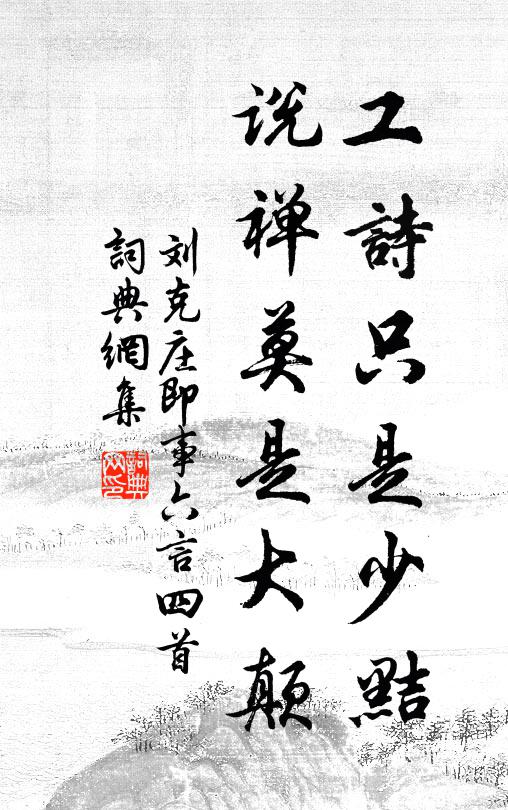 工詩只是少黠
説禅莫是大顛
刘克庄即事六言四首
詞典網集
詞典网印